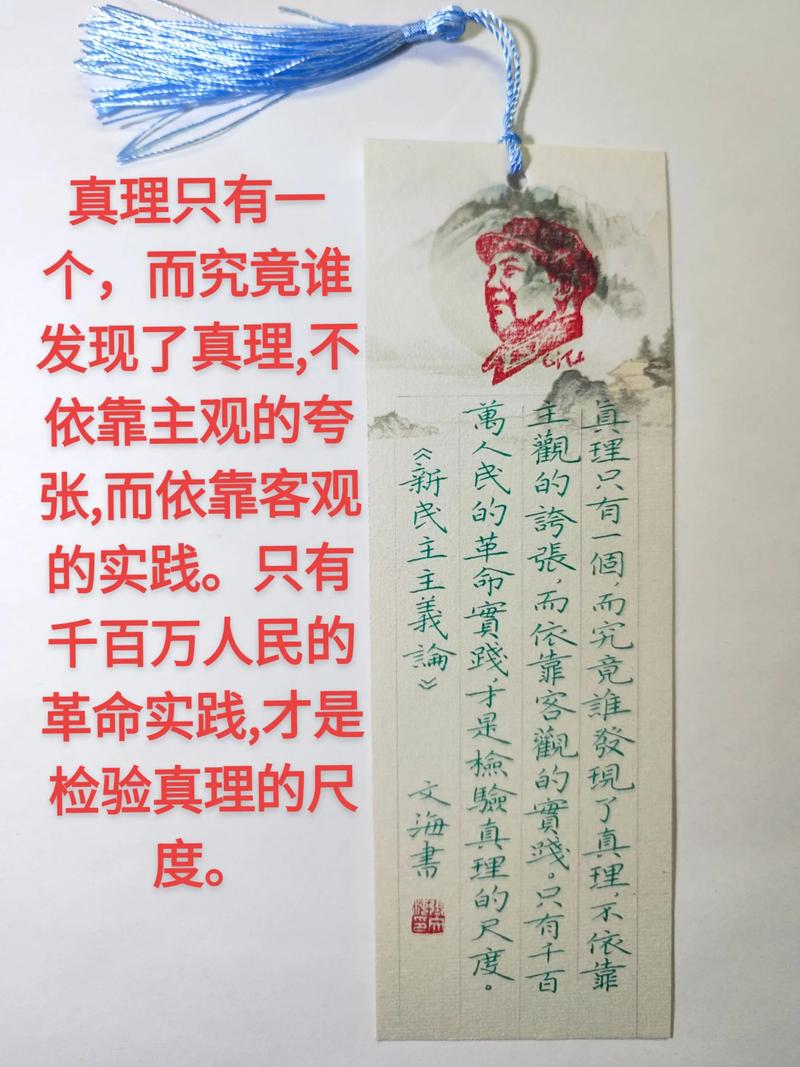 真理只有一
个，而究竟谁
发现了真理,不
依靠主观的夸
张,而依靠客观
的实践。只有
千百万人民的
革命实践,才是
检验真理的尺
度。
真理只有一個，而究竟誰發現了真理，不依靠
主觀的誇張，而依靠客觀的實踐。只有千百
萬人民的革命實踐，才是檢驗真理的尺度。
《新民主主義論》 文海書